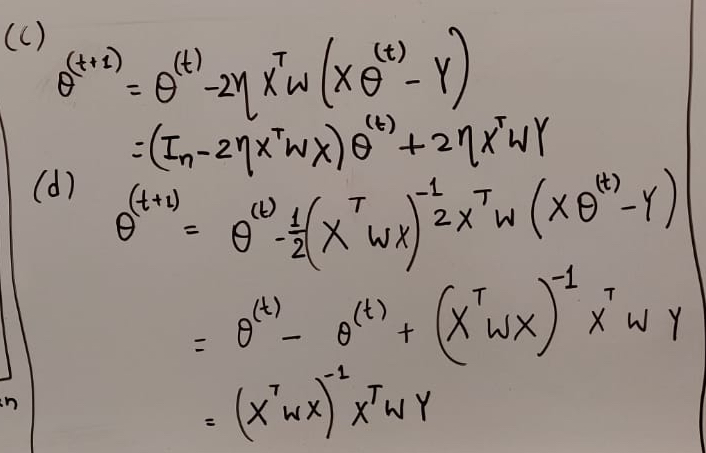 (c)
θ^(t+1) = θ^(t) - 2η X^T W (X θ^(t) - Y)
= (I_n - 2η X^T W X) θ^(t) + 2 η X^T W Y
(d)
θ^(t+1) = θ^(t) - 1/2 (X^T W X)^-1 2 X^T W (X θ^(t) - Y)
= θ^(t) - θ^(t) + (X^T W X)^-1 X^T W Y
= (X^T W X)^-1 X^T W Y